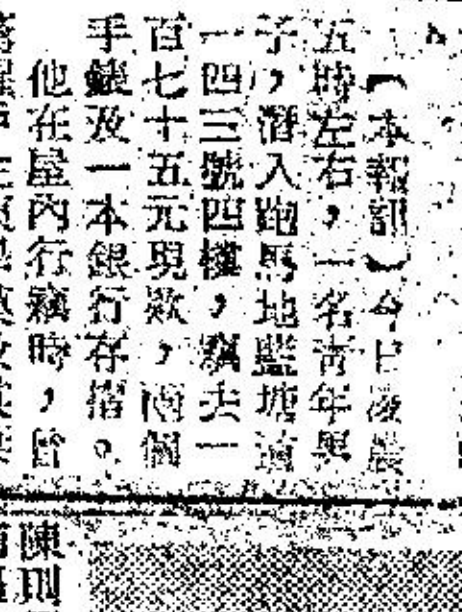 （本報訊）今日凌晨
五時左右，一名青年男
子，潛入跑馬地藍塘道
一四三號四樓，竊去一
百七十五元現款，兩個
手錶及一本銀行存摺。
他在屋內行竊時，曾
陳